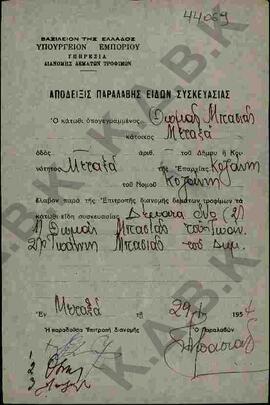 44069
ΒΑΣΙΛΕΙΟΝ ΤΗΣ ΕΛΛΑΔΟΣ
ΥΠΟΥΡΓΕΙΟΝ ΕΜΠΟΡΙΟΥ
ΥΠΗΡΕΣΙΑ
ΔΙΑΝΟΜΗΣ ΔΕΜΑΤΩΝ ΤΡΟΦΙΜΩΝ
ΑΠΟΔΕΙΞΙΣ ΠΑΡΑΛΑΒΗΣ ΕΙΔΩΝ ΣΥΣΚΕΥΑΣΙΑΣ
Ὁ κάτωθι ὑπογεγραμμένος Θωμᾶς Μπασιᾶς
κάτοικος Μεταξᾶ
ὁδὸς ἀριθ. τοῦ Δήμου ἢ Κοι-
νότητος Μεταξᾶ τῆς Ἐπαρχίας Κοζάνης
τοῦ Νομοῦ Κοζάνης
ἔλαβον παρὰ τῆς Ἐπιτροπῆς διανομῆς δεμάτων τροφίμων τὰ
κάτωθι εἴδη συσκευασίας Δέματα δύο (2)
1) Θωμᾶ Μπασιᾶ τοῦ Ἰωάν.
2) Ἰωάννη Μπασιᾶ τοῦ Δημ.
Ἐν Μεταξᾶ τῇ 29 1954
Ἡ παραδοῦσα Ἐπιτροπὴ διανομῆς Ὁ Παραλαβὼν
1
2
3
Κ.Α.Β.Κ